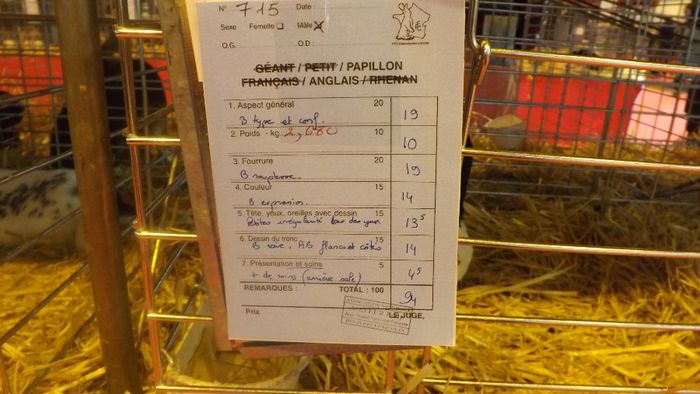 N° 715 Date :
Sexe Femelle Mâle
O.G. O.D :
GÉANT / PETIT / PAPILLON
FRANÇAIS / ANGLAIS / RHENAN
1. Aspect général 20 19
B type et conf.
2. Poids - kg 10 10
3. Fourrure 20 19
B
4. Couleur 15 14
B expression.
5. Tête, yeux, oreilles avec dessin 15 13⁵
Petites irrégularité tour des yeux
6. Dessin du tronc 15 14
B raie, AB flancs et côtés
7. Présentation et soins 5 4⁵
+ de soins (arrière sale)
REMARQUES : TOTAL : 100 94
Prix LE JUGE,